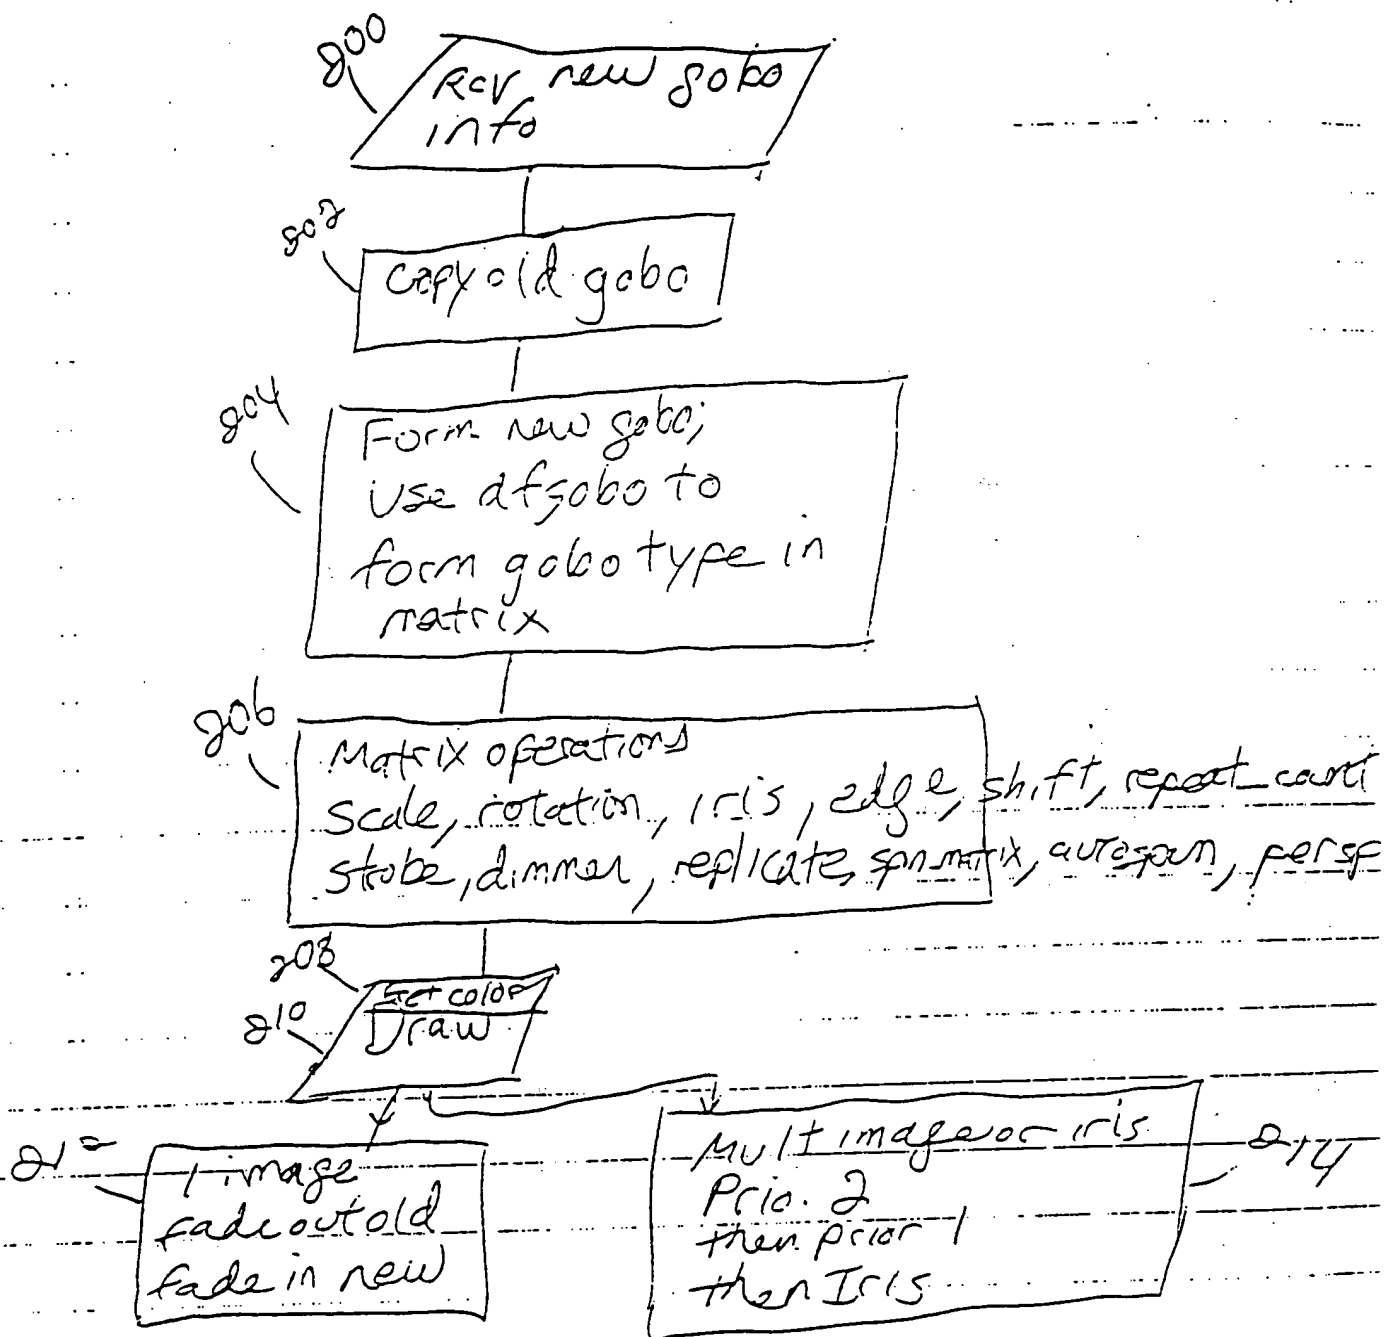 200
Rcv new gobo
info
202
Copy old gobo
204
Form new gobo;
use dfgobo to
form gobo type in
matrix
206
Matrix operations
scale, rotation, iris, edge, shift, repeat_count
strobe, dimmer, replicate, spnmatrix, autospun, persp
208
Set color
210
Draw
212
1 image
fade out old
fade in new
Mult image or iris
214
Prio. 2
then prior 1
then Iris